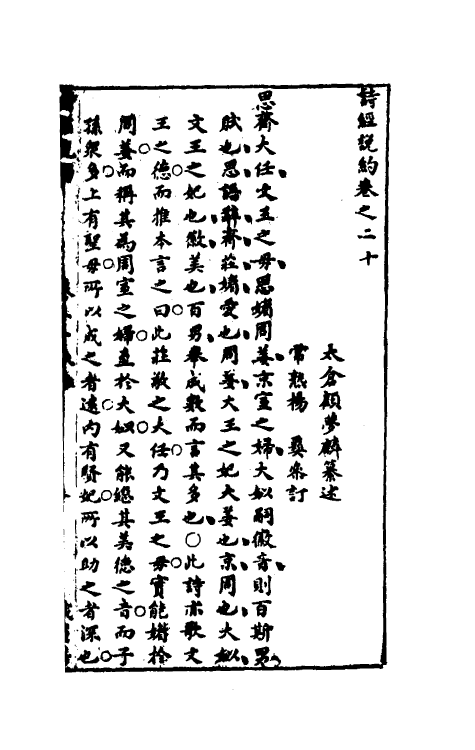 詩經說約卷之二十
太倉顧夢麟纂述
常熟楊彝叅訂
思齊大任文王之母思媚周姜京室之婦大姒嗣徽音則百斯男
賦也思語辭齊莊媚愛也周姜大王之妃大姜也京周也大姒
文王之妃也徽美也百男舉成數而言其多也○此詩亦歌文
王之德而推本言之曰此莊敬之大任乃文王之母實能媚於
周姜而稱其為周室之婦至於大姒又能繼其美德之音而子
孫衆多上有聖母所以成之者遠內有賢妃所以助之者深也